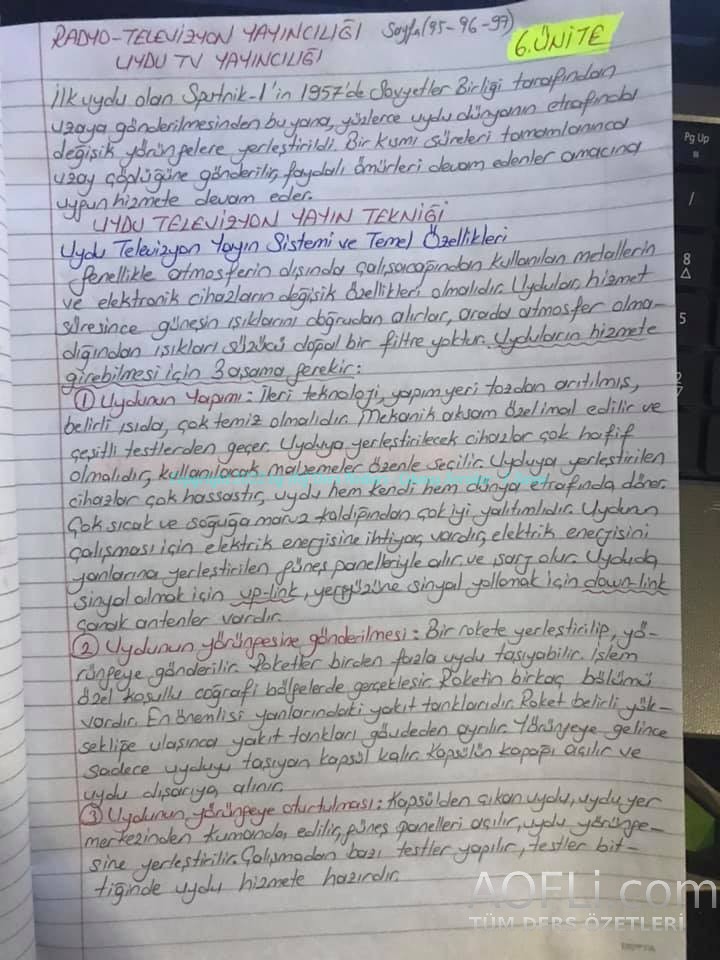 RADYO-TELEVİZYON YAYINCILIĞI Sayfa(95-96-97)
6.ÜNİTE
UYDU TV YAYINCILIĞI
İlk uydu olan Sputnik-1'in 1957'de Sovyetler Birliği tarafından
uzaya gönderilmesinden bu yana, yüzlerce uydu dünyanın etrafında
değişik yörüngelere yerleştirildi. Bir kısmı süreleri tamamlanınca
uzay çöplüğüne gönderilir, faydalı ömürleri devam edenler amacına
uygun hizmete devam eder.
UYDU TELEVİZYON YAYIN TEKNİĞİ
Uydu Televizyon Yayın Sistemi ve Temel Özellikleri
Genellikle atmosferin dışında çalışacağından kullanılan metallerin
ve elektronik cihazların değişik özellikleri olmalıdır. Uydular, hizmet
süresince güneşin ışıklarını doğrudan alırlar, arada atmosfer olma-
dığından ışıkları süzücü doğal bir filtre yoktur. Uyduların hizmete
girebilmesi için 3 aşama gerekir:
① Uydunun Yapımı: İleri teknoloji, yapım yeri tozdan arıtılmış,
belirli ısıda, çok temiz olmalıdır. Mekanik aksam özel imal edilir ve
çeşitli testlerden geçer. Uyduya yerleştirilecek cihazlar çok hafif
olmalıdır, kullanılacak malzemeler özenle seçilir. Uyduya yerleştirilen
cihazlar çok hassastır, uydu hem kendi hem dünya etrafında döner.
Çok sıcak ve soğuğa maruz kaldığından çok iyi yalıtımlıdır. Uydunun
çalışması için elektrik enerjisine ihtiyaç vardır, elektrik enerjisini
yanlarına yerleştirilen güneş panelleriyle alır ve şarj olur. Uyduda
sinyal almak için up-link, yeryüzüne sinyal yollamak için down-link
çanak antenler vardır.
② Uydunun yörüngesine gönderilmesi: Bir rokete yerleştirilip, yö-
rüngeye gönderilir. Roketler birden fazla uydu taşıyabilir. İşlem
özel koşullu coğrafi bölgelerde gerçekleşir. Roketin birkaç bölümü
vardır. En önemlisi yanlarındaki yakıt tanklarıdır. Roket belirli yük-
sekliğe ulaşınca yakıt tankları gövdeden ayrılır. Yörüngeye gelince
sadece uyduyu taşıyan kapsül kalır. Kapsülün kapağı açılır ve
uydu dışarıya alınır.
③ Uydunun yörüngeye oturtulması: Kapsülden çıkan uydu, uydu yer
merkezinden kumanda edilir, güneş panelleri açılır, uydu yörünge-
sine yerleştirilir. Çalışmadan bazı testler yapılır, testler bit-
tiğinde uydu hizmete hazırdır.
AOFLi.com
TÜM DERS ÖZETLERİ
Pg Up
/
8
5
2